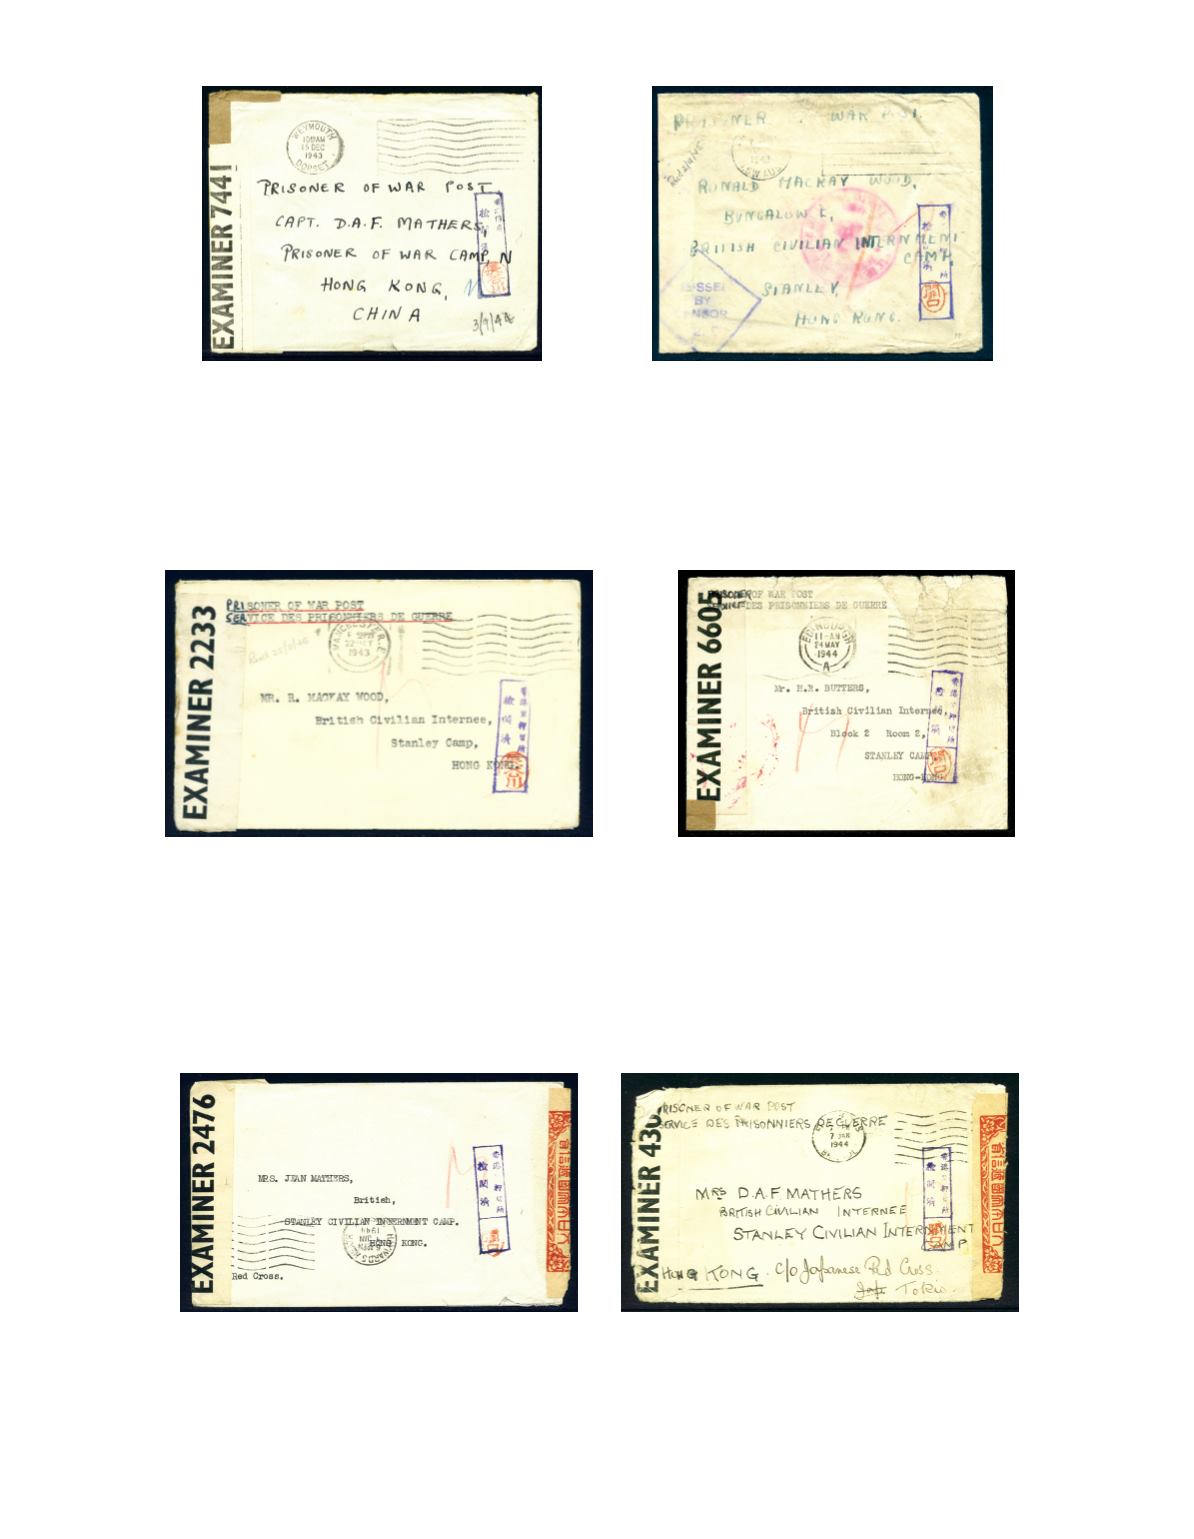 EXAMINER 7441
WEYMOUTH
15 DEC
1943
DORSET
PRISONER OF WAR POST
CAPT. D.A.F. MATHERS,
PRISONER OF WAR CAMP, N
HONG KONG,
CHINA
3/9/44
PRISONER WAR POST.
1943
RONALD MACKAY WOOD,
BUNGALOW E,
BRITISH CIVILIAN INTERNMENT
CAMP,
STANLEY,
HONG KONG.
BY
EXAMINER 2233
PRISONER OF WAR POST
SERVICE DES PRISONNIERS DE GUERRE
1943
MR. R. MACKAY WOOD,
British Civilian Internee,
Stanley Camp,
HONG KONG.
檢閱濟
EXAMINER 6605
PRISONER OF WAR POST
SERVICE DES PRISONNIERS DE GUERRE
EDINBURGH
11-AM
24 MAY
1944
A
Mr. H.R. BUTTERS,
British Civilian Internee,
Block 2 Room 2,
STANLEY CAMP
HONG-KONG
EXAMINER 2476
MRS. JEAN MATHERS,
British,
STANLEY CIVILIAN INTERNMENT CAMP.
HONG KONG.
Red Cross.
檢閱濟
EXAMINER 430
PRISONER OF WAR POST
SERVICE DES PRISONNIERS DE GUERRE
7 JAN
1944
MRS D.A.F. MATHERS
BRITISH CIVILIAN INTERNEE
STANLEY CIVILIAN INTERNMENT
CAMP
HONG KONG. c/o Japanese Red Cross.
Tokio.
檢閱濟